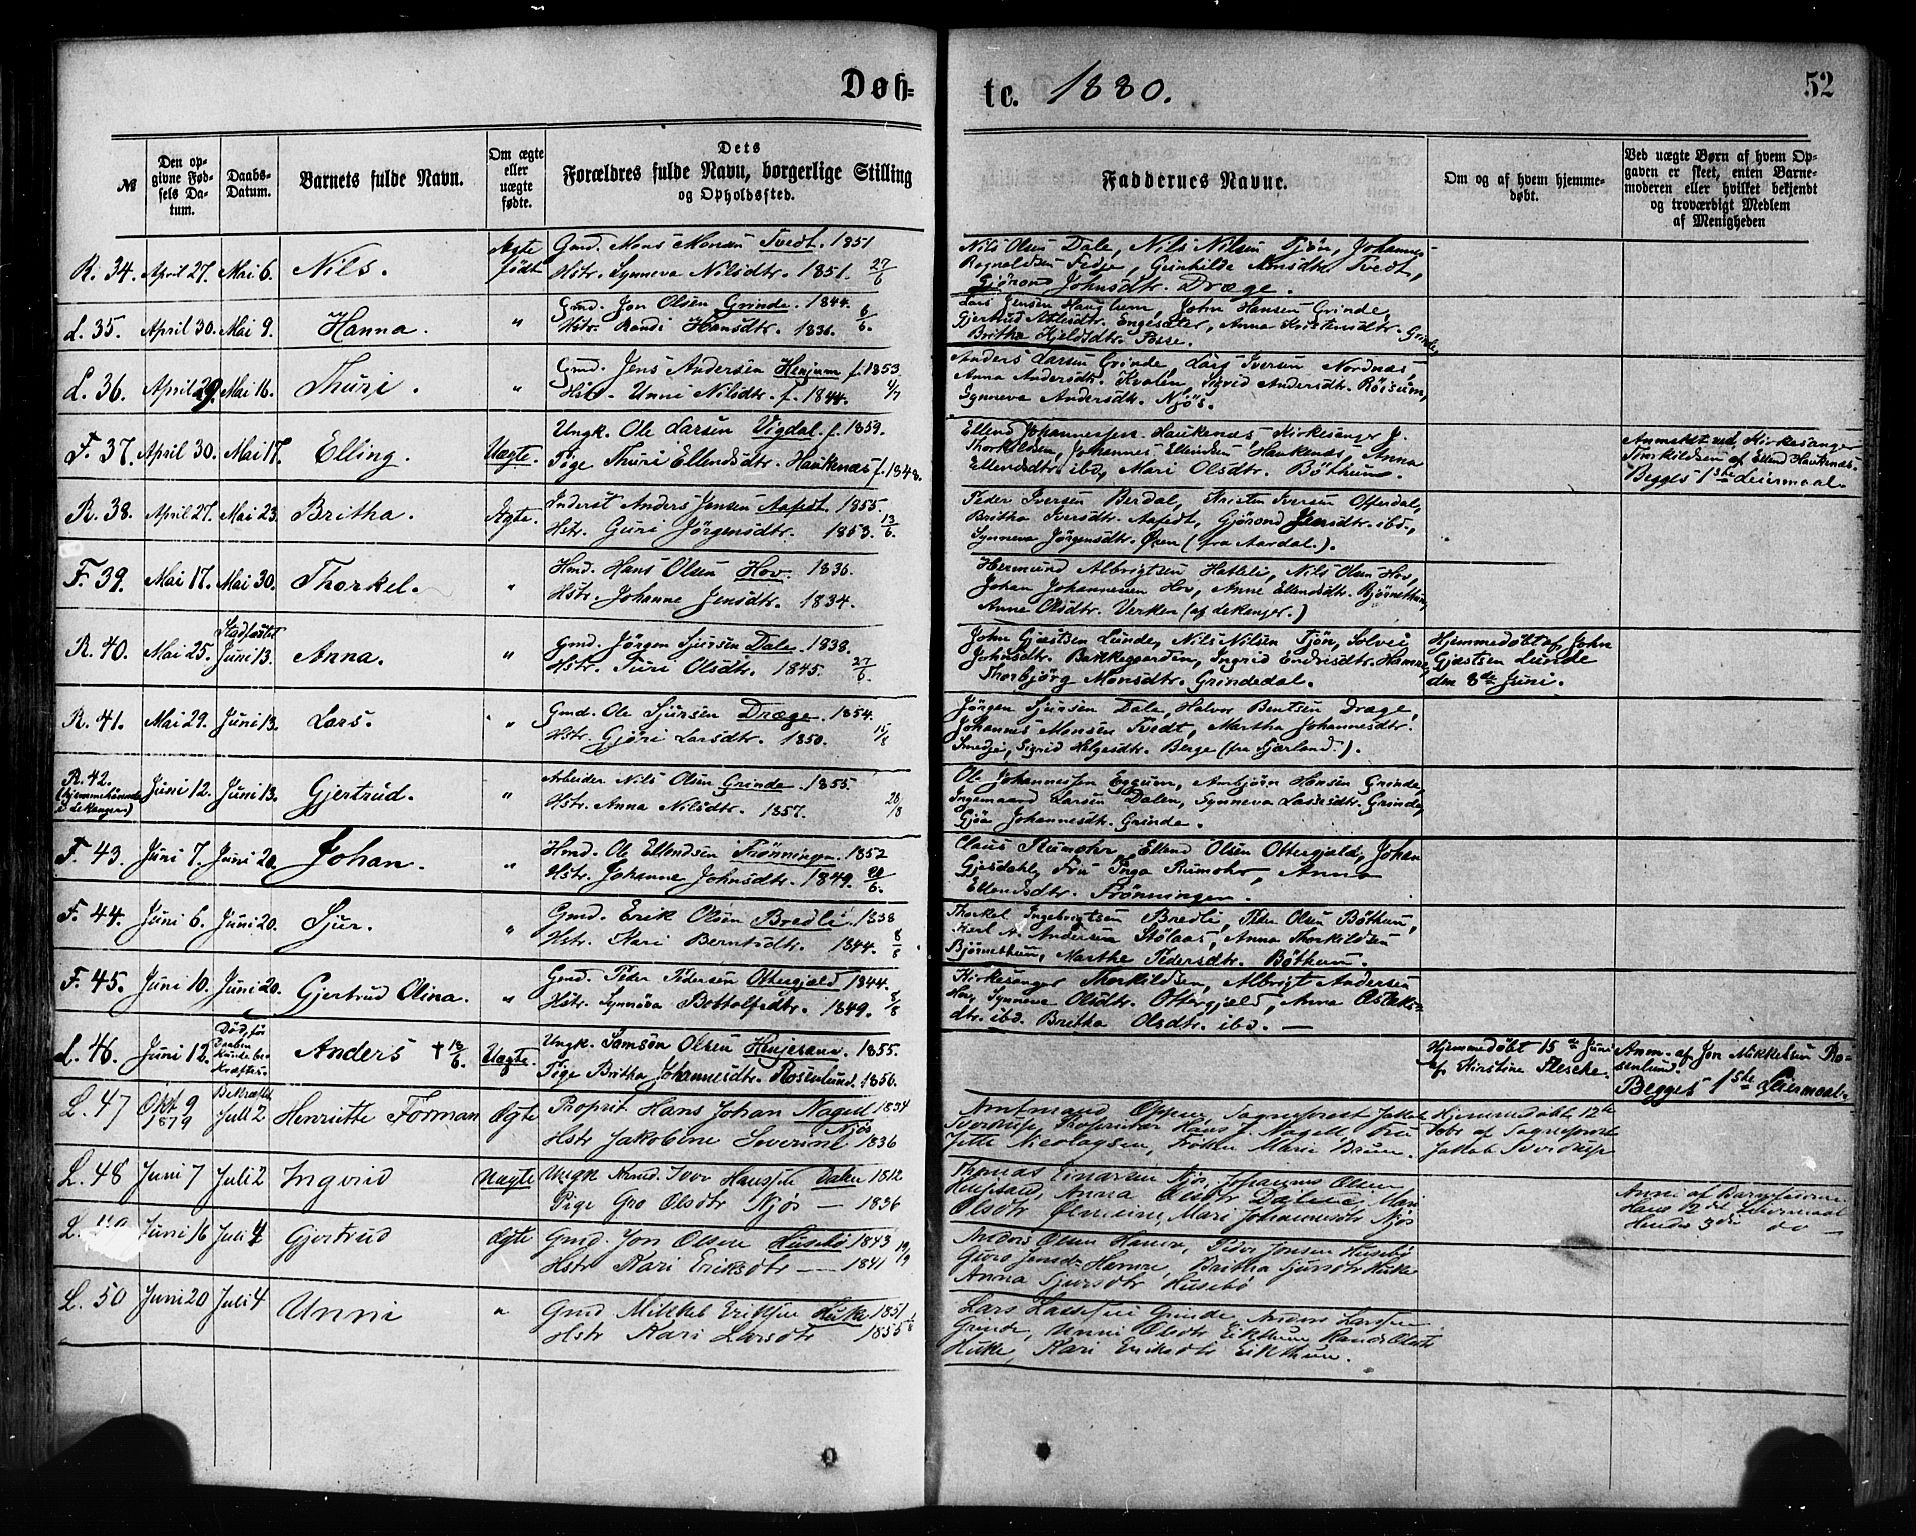 Døb=
te. 1880.
52
№
Den op-
givne Fød-
sels Da-
tum.
Daabs-
Datum.
Barnets fulde Navn.
Om ægte
eller
uægte
fødte.
Dets
Forældres fulde Navn, borgerlige Stilling
og Opholdssted.
Faddernes Navne.
Om og af hvem hjemme-
døbt.
Ved uægte Børn af hvem Op-
gaven er skeet, enten Barne-
moderen eller hvilket bekjendt
og troværdigt Medlem
af Menigheden
R. 34. April 27. Mai 6. Nils. Ægte født Gmd. Mons Monsen Tvedt. 1851
Hstr. Synneva Nilsdtr. 1851. 27/6
Nils Olsen Dale, Nils Nilsen Tjøn, Johannes
Ragnaldsen Fedje, Gunhilde Monsdtr. Tvedt,
Gjørond Johnsdtr. Dræge.
L. 35. April 30. Mai 9. Hanna. " Gmd. Jon Olsen Grinde. 1844.
Hstr. Randi Hansdtr. 1836. 6/6.
Lars Jensen Haughum, John Hansen Grinde,
Gjertrud Axelsdtr. Engesæter, Anna Kristensdtr. Grinde,
Britha Kjeldsdtr. Fosse.
L. 36. April 29. Mai 16. Thuri. " Gmd. Jens Andersen Henjum f. 1853
Hstr. Unni Nilsdtr. f. 1844. 4/7
Anders Larsen Grinde, Lars Iversen Nordnæs,
Anna Andersdtr. Kvalen, Sigrid Andersdtr. Røisum,
Synneva Andersdtr. Njøs.
F. 37. April 30. Mai 17. Elling. Uægte. Ungk. Ole Larsen Vigdal. f. 1859.
Pige Thuri Ellendsdtr. Haukenæs f. 1848.
Ellend Johannessen Haukenæs, Kirkesanger J.
Thorkildsen, Johannes Ellendsen Haukenæs, Anna
Ellendsdtr. ibd, Mari Olsdtr. Bøthun.
Anmeldt ved Kirkesanger
Thorkildsen af Ellend Haukenæs.
Begges 1ste Leiermaal.
R. 38. April 27. Mai 23. Britha. Ægte. Inderst Anders Jensen Aafedt. 1855.
Hstr. Guri Jørgensdtr. 1853. 13/6
Peder Iversen Berdal, Kristen Iversen Offerdal,
Britha Iversdtr. Aafedt, Gjørond Jensdtr. ibd.,
Synneva Jørgensdtr. Øren (fra Aardal.).
F. 39. Mai 17. Mai 30. Thorkel. " Hmd. Hans Olsen Hov. 1836.
Hstr. Johanne Jensdtr. 1834.
Hermund Albrigtsen Hatleli, Nils Olsen Hov,
Johan Johannessen Hov, Anne Ellendsdtr. Bjørnethun,
Anne Olsdtr. Verken (af Lekanger.)
R. 40. Mai 25. Stadfæstet Juni 13. Anna. " Gmd. Jørgen Sjursen Dale. 1838.
Hstr. Turi Olsdtr. 1845. 27/6
John Gjæstsen Lunde, Nils Nilsen Tjøn, Solvei
Johnsdtr. Bakkegaarden, Ingrid Endrisdtr. Hamre,
Thorbjørg Monsdtr. Grindedal.
Hjemmedøbt af John
Gjæstsen Lunde
den 8de Juni.
R. 41. Mai 29. Juni 13. Lars. " Gmd. Ole Sjursen Dræge. 1854.
Hstr. Gjøri Larsdtr. 1850. 15/8
Jørgen Sjursen Dale, Halvor Bentsen Dræge,
Johannes Monsen Tvedt, Martha Johannesdtr.
Smedje, Sigrid Helgesdtr. Berge (fra Fjærland.).
R. 42. (hjemmehørende i Lekanger) Juni 12. Juni 13. Gjertrud. " Arbeider Nils Olsen Grinde. 1855.
Hstr. Anna Nilsdtr. 1857. 28/8
Ole Johannessen Eggum, Arnbjørn Hansen Grinde,
Ingemaand Larsen Dalen, Synneva Lassesdtr. Grinde,
Gjøa Johannesdtr. Grinde.
F. 43. Juni 7. Juni 20. Johan. " Hmd. Ole Ellendsen Frønningen. 1852
Hstr. Johanne Johnsdtr. 1849. 20/6.
Claus Rumohr, Ellend Olsen Ottergjæld, Johan
Gjesdahl, Fru Inga Rumohr, Anna
Ellendsdtr. Frønningen.
F. 44. Juni 6. Juni 20. Sjur. " Gmd. Erik Olsen Bredli. 1838
Hstr. Kari Berntsdtr. 1844. 8/8
Thorkel Ingebrigtsen Bredli, Peder Olsen Bøthun,
Karl A. Andersen Stølaas, Anna Thorkildsen
Bjørnethun, Marthe Pedersdtr. Bøthun.
F. 45. Juni 10. Juni 20. Gjertrud Olina. " Gmd. Peder Pedersen Ottergjæld 1844.
Hstr. Synnøva Bottolfsdtr. 1849. 8/8
Kirkesanger Thorkildsen, Albrigt Andersen
Hov, Synneve Olsdtr. Ottergjæld, Anna Oslaks-
dtr. ibd. Britha Olsdtr. ibd. —
L. 46. Juni 12. Død, før Daaben kunde bekræftes. Anders † 18/6. Uægte. Ungk. Samson Olsen Henjesand. 1855.
Pige Britha Johannesdtr. Rosenlund. 1856.
Hjemmedøbt 15de Juni
af Kirstine Flesche.
Anm. af Jon Mikkelsen Ro-
senlund.
Begges 1ste Leiermaal.
L. 47 Okt 9 1879 Bekræftet Juli 2 Henriette Forman Ægte Proprit. Hans Johan Nagell 1834
Njøs
Hstr Jakobine Severine 1836
Amtmand Oppen, Sogneprest Jakob
Sverdrup, Proprietær Hans J. Nagell, Fru
Jette Nicolaysen, Frøken Marie Bruun.
Hjemmedøbt 12te
af Sogneprest
Jakob Sverdrup
L. 48 Juni 7 Juli 2 Ingvid Uægte Ungk Iver Hansen Dalen 1812
Pige Gro Olsdtr Njøs — 1836
Thomas Einarsen Njøs, Johannes Olsen
Anna Olsdtr Dalen, Mari
Olsdtr Mari Johannesdtr Njøs
Anm. af Barnefaderen
Hans 2det Leiermaal
Hendes 3die do —
L. Juni 16 Juli 4 Gjertrud Ægte Gmd. Jon Olsen Husebø 1843
Hstr Kari Eriksdtr — 1841 19/9
Anders Olsen Hamre, Peder Jonsen Husebø
Guro Jensdtr Hamre, Britha Sjursdtr Huke
Anna Sjursdtr Husebø
L. 50 Juni 20 Juli 4 Unni " Gmd Mikkel Eriksen Huke 1851
Hstr Kari Larsdtr 1855
Lars Lassesen Grinde, Anders Larsen
Grinde, Unni Olsdtr Eikthun Randi Olsdtr
Huke, Kari Eriksdtr Eikthun.